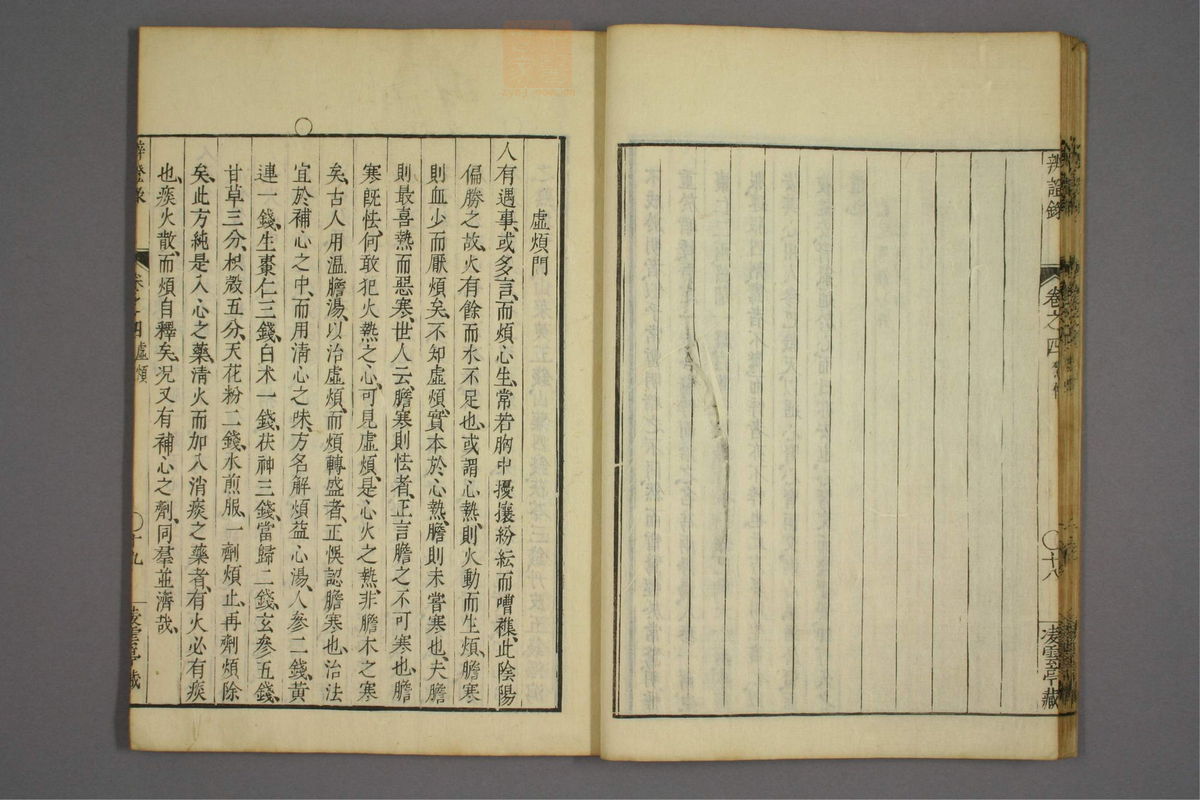 辨證錄
卷之四
十八
凌雲亭藏
虛煩門
人有遇事、或多言、而煩心生、常若胸中擾攘紛紜而嘈雜、此陰陽
偏勝之故、火有餘而水不足也、或謂心熱、則火動而生煩、膽寒
則血少而厭煩矣、不知虛煩、實本於心熱、膽則未嘗寒也、夫膽
則最喜熱而惡寒、世人云、膽寒則怯者、正言膽之不可寒也、膽
寒旣怯、何敢犯火熱之心、可見虛煩、是心火之熱、非膽木之寒
矣、古人用溫膽湯、以治虛煩、而煩轉盛者、正悞認膽寒也、治法
宜於補心之中、而用清心之味、方名解煩益心湯、人參二錢、黃
連一錢、生棗仁三錢、白术一錢、茯神三錢、當歸二錢、玄參五錢、
甘草三分、枳殼五分、天花粉二錢、水煎服、一劑煩止、再劑煩除
矣、此方純是入心之藥、清火而加入消痰之藥者、有火必有痰
也、痰火散、而煩自釋矣、况又有補心之劑、同羣並濟哉、
辨證錄
卷之四 虛煩
十九
凌雲亭藏